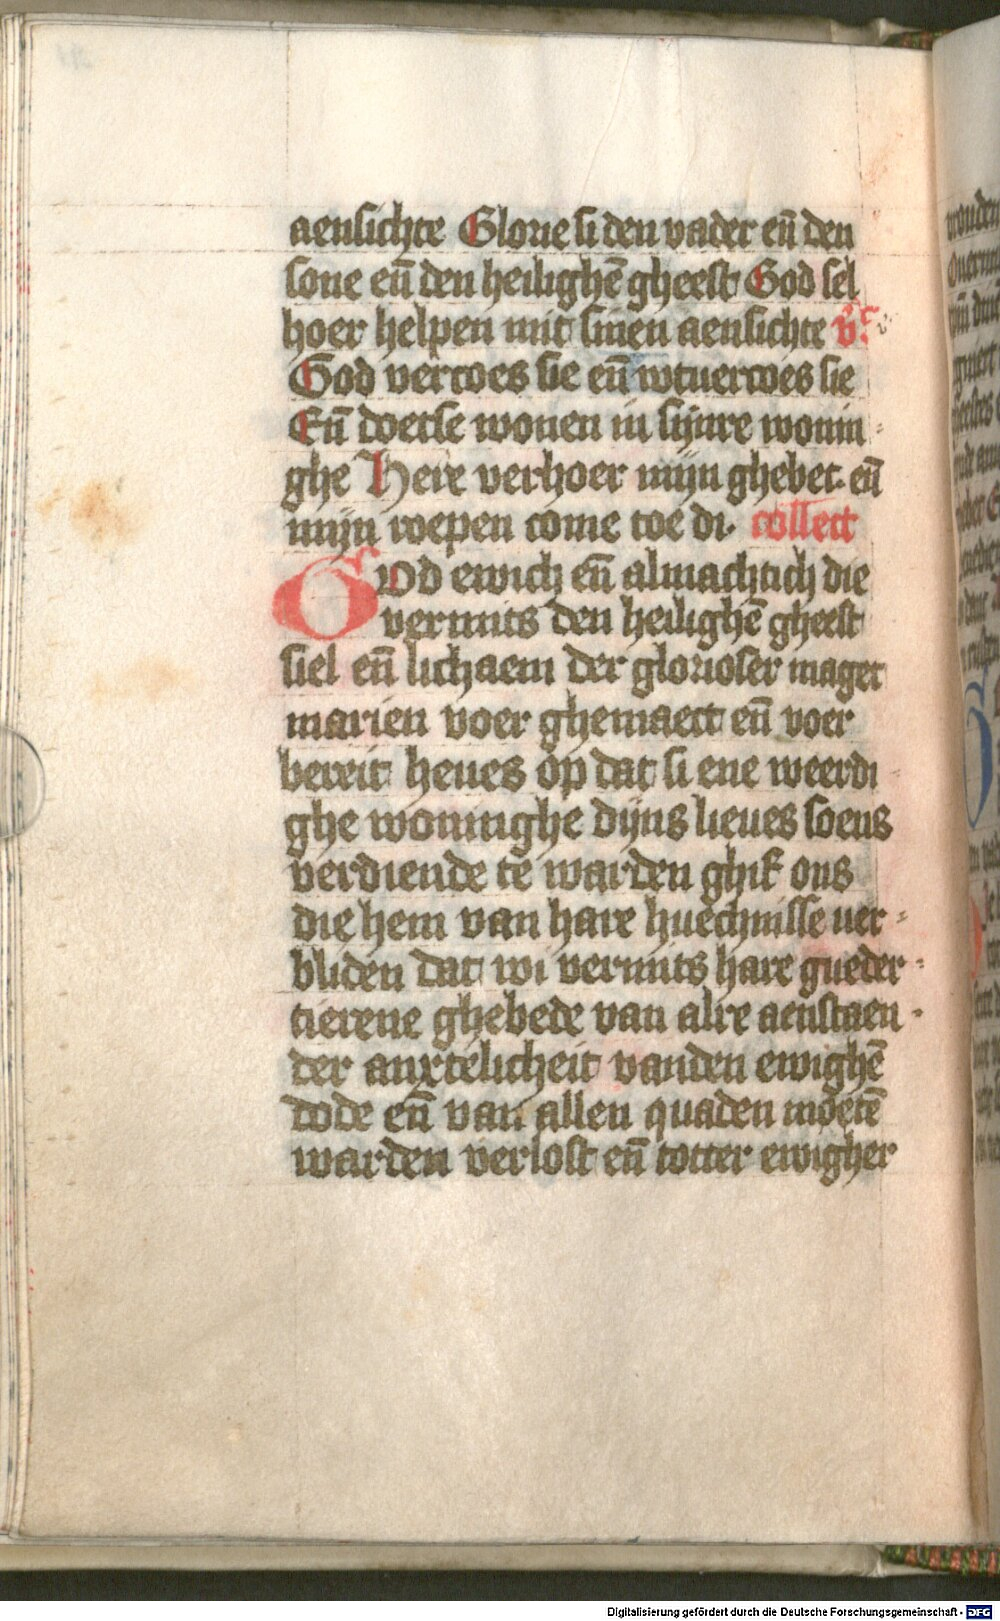 aensichte Glorie si den vader eñ den
sone eñ den heilighē gheest God sel
hoer helpen mit sinen aensichte v̄s
God vercoes sie eñ wtuercoes sie
Eñ doetse wonen in sijnre wonin
ghe Here verhoer mijn ghebet. eñ
mijn roepen come toe di. collect
God ewich eñ almachtich die
vermits den heilighē gheest
siel eñ lichaem der glorioser maget
marien voer ghemaect eñ voer
bereit heues op dat si ene weerdi
ghe woninghe dijns lieues soens
verdiende te warden ghif ons
die hem van hare huechnisse uer
bliden dat wi vermits hare gueder
tierene ghebede van alre aenstaen
der anxtelicheit vanden ewighē
dode eñ van allen quaden moetē
warden verlost eñ totter ewigher
Digitalisierung gefördert durch die Deutsche Forschungsgemeinschaft - DFG